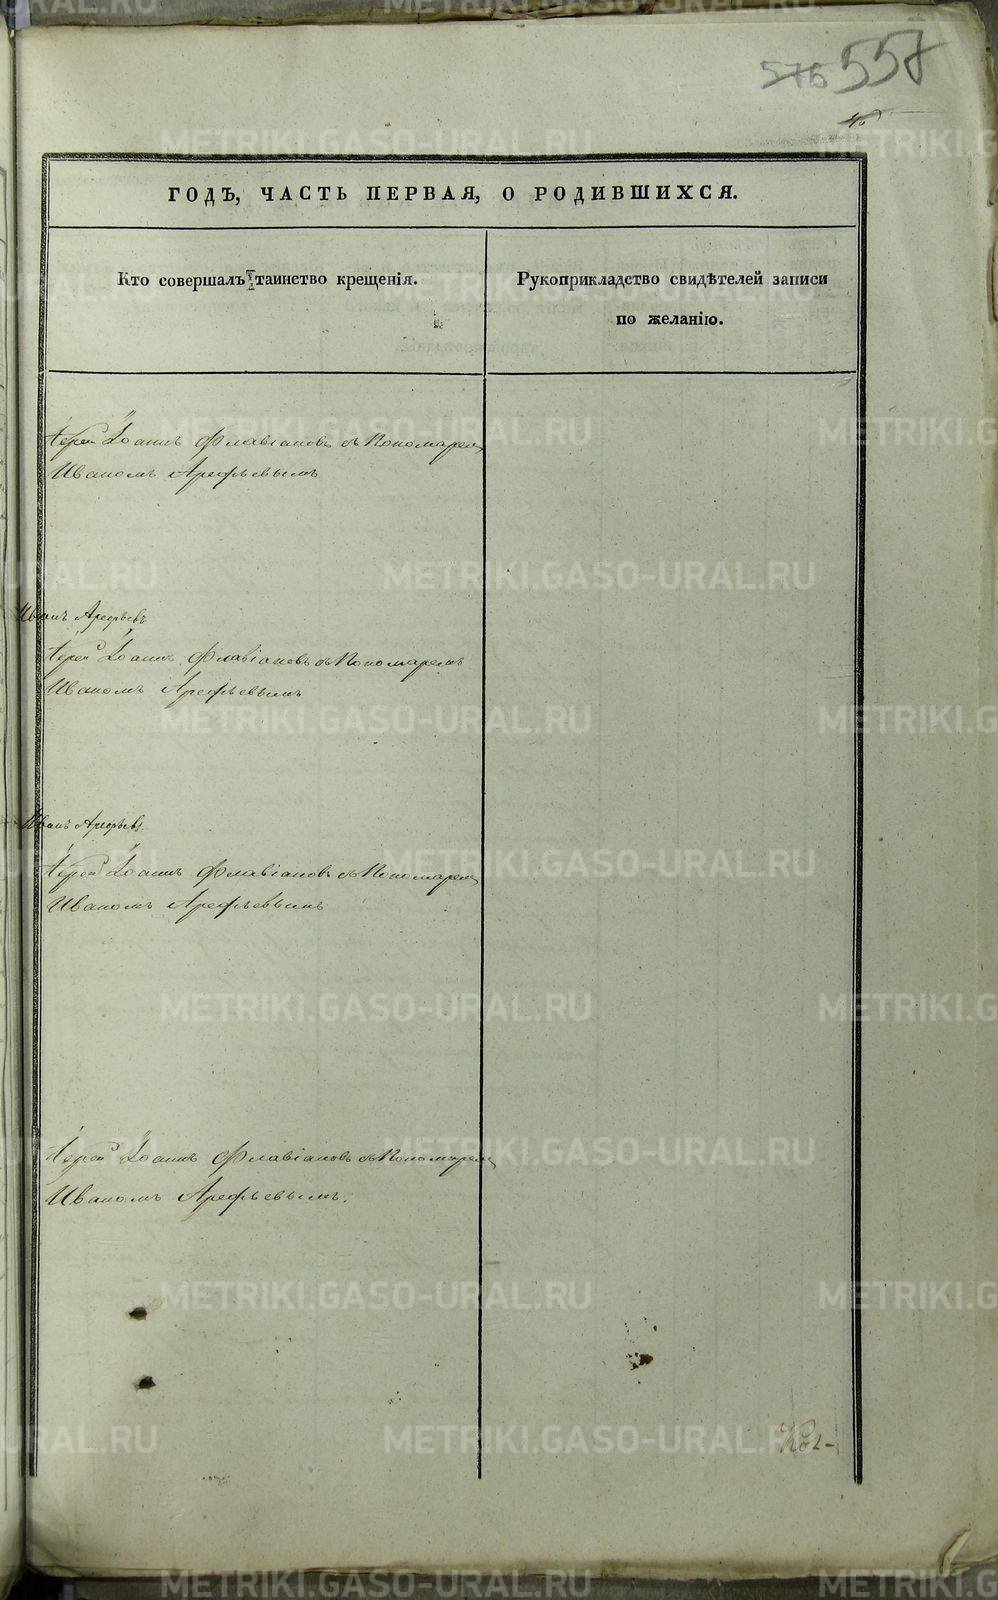 575 557
ГОДЪ, ЧАСТЬ ПЕРВАЯ, О РОДИВШИХСЯ.
Кто совершалъ таинство крещенія.
Рукоприкладство свидѣтелей записи
по желанію.
Іерей Іоаннъ Флавіановъ съ Пономарем
Иваномъ Арефьевымъ
Иванъ Арефьевъ
Іерей Іоаннъ Флавіановъ съ Пономаремъ
Иваномъ Арефьевымъ
Иванъ Арефьевъ
Іерей Іоаннъ Флавіановъ съ Пономарем
Иваномъ Арефьевымъ
Іерей Іоаннъ Флавіановъ съ Пономарем
Иваномъ Арефьевымъ.
METRIKI.GASO-URAL.RU